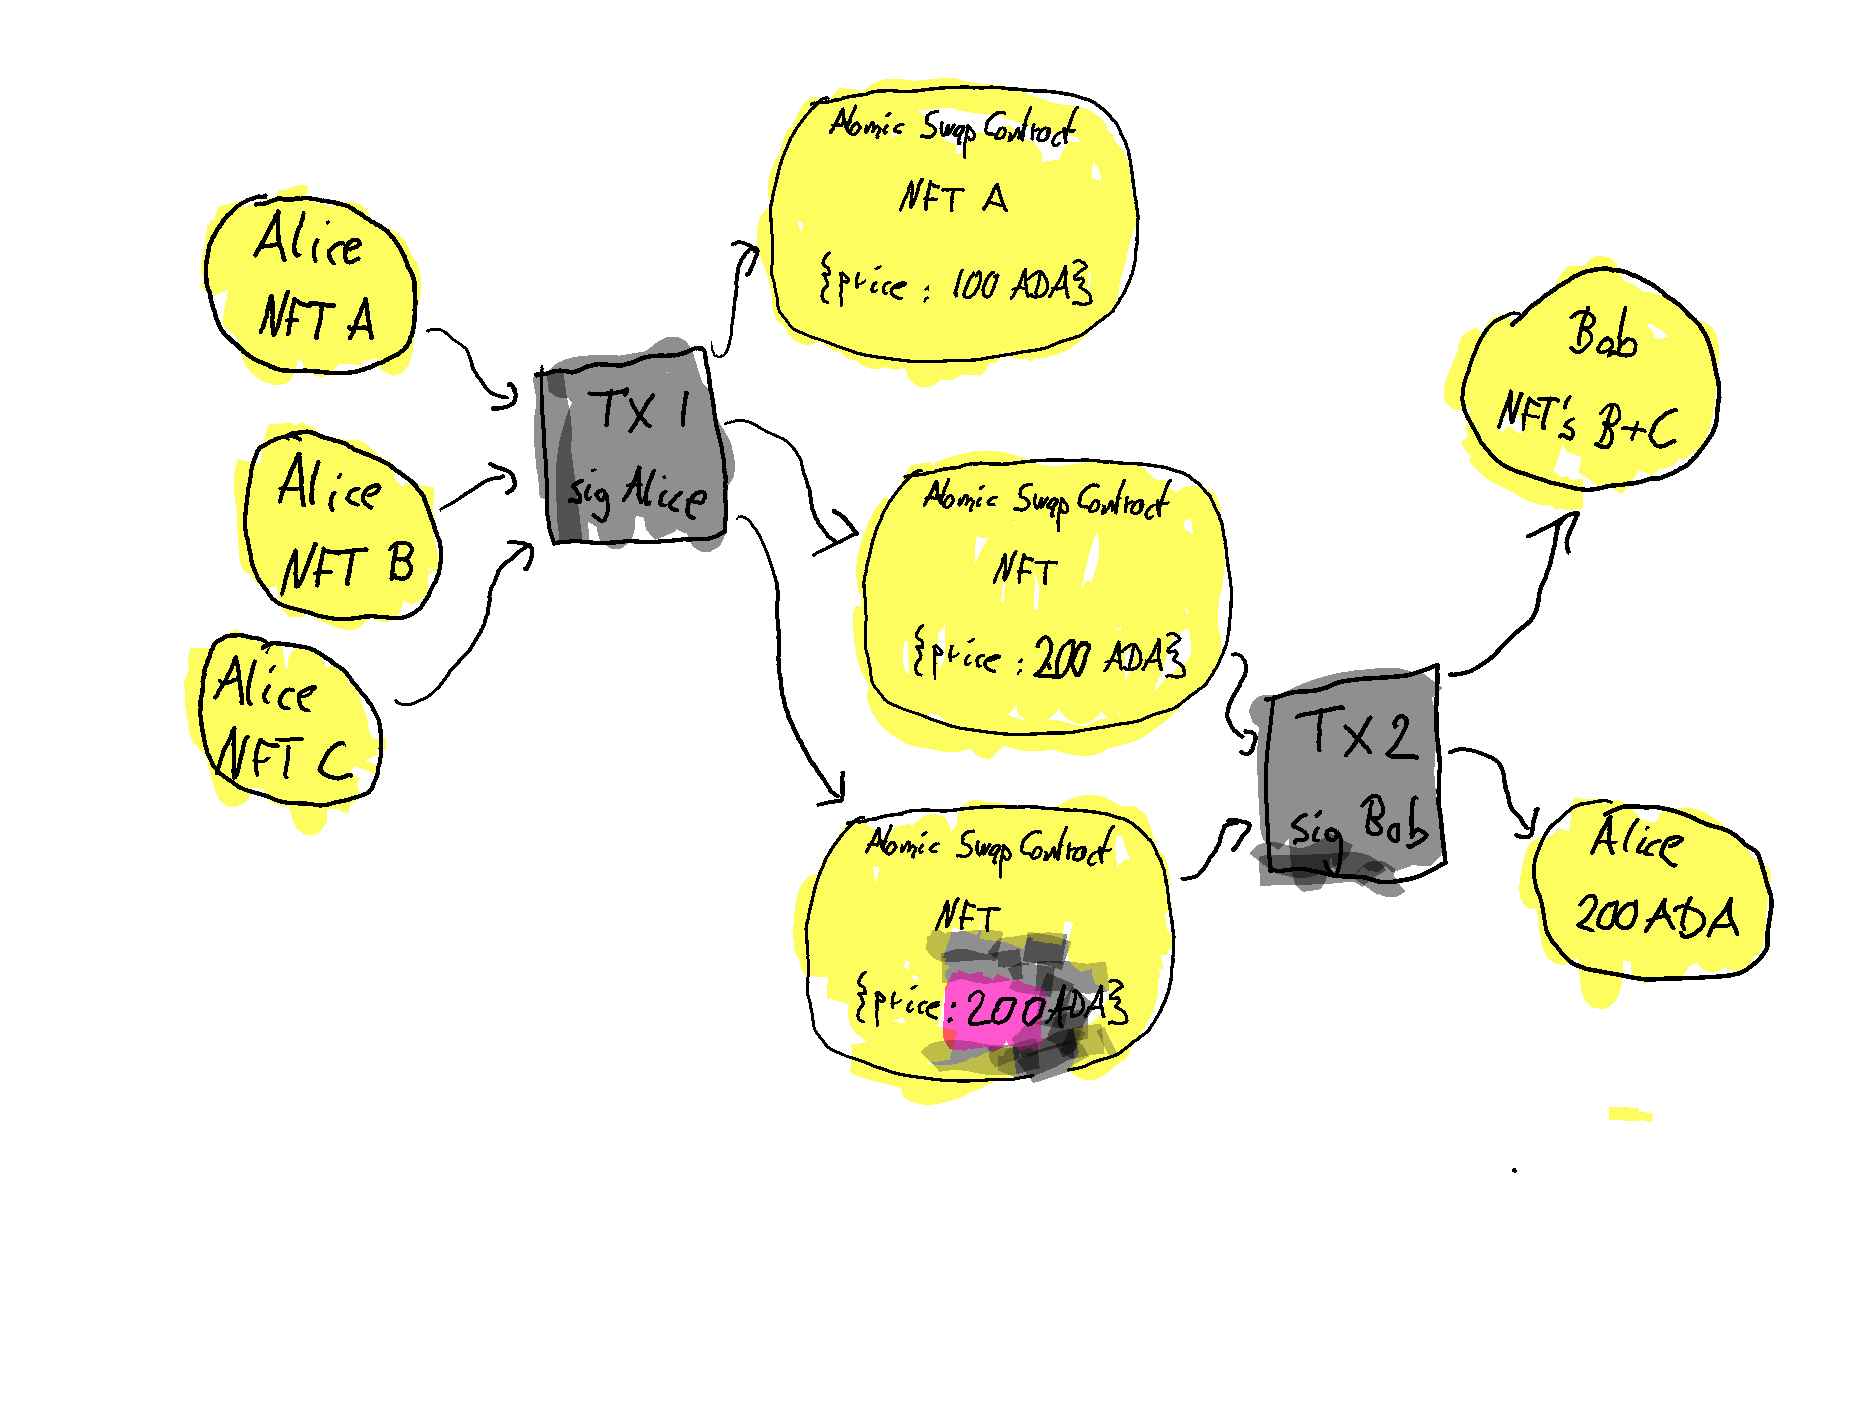 Alice
NFT A
Alice
NFT B
Alice
NFT C
TX 1
sig Alice
Atomic Swap Contract
NFT A
{price : 100 ADA}
Atomic Swap Contract
NFT
{price : 200 ADA}
Atomic Swap Contract
NFT
{price : 200 ADA}
TX 2
sig Bob
Bob
NFT's B+C
Alice
200 ADA